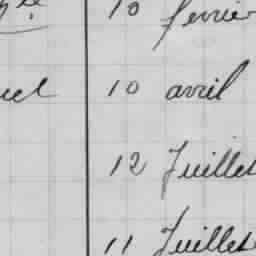 10 fevrier
10 avril
12 Juillet
11 Juillet